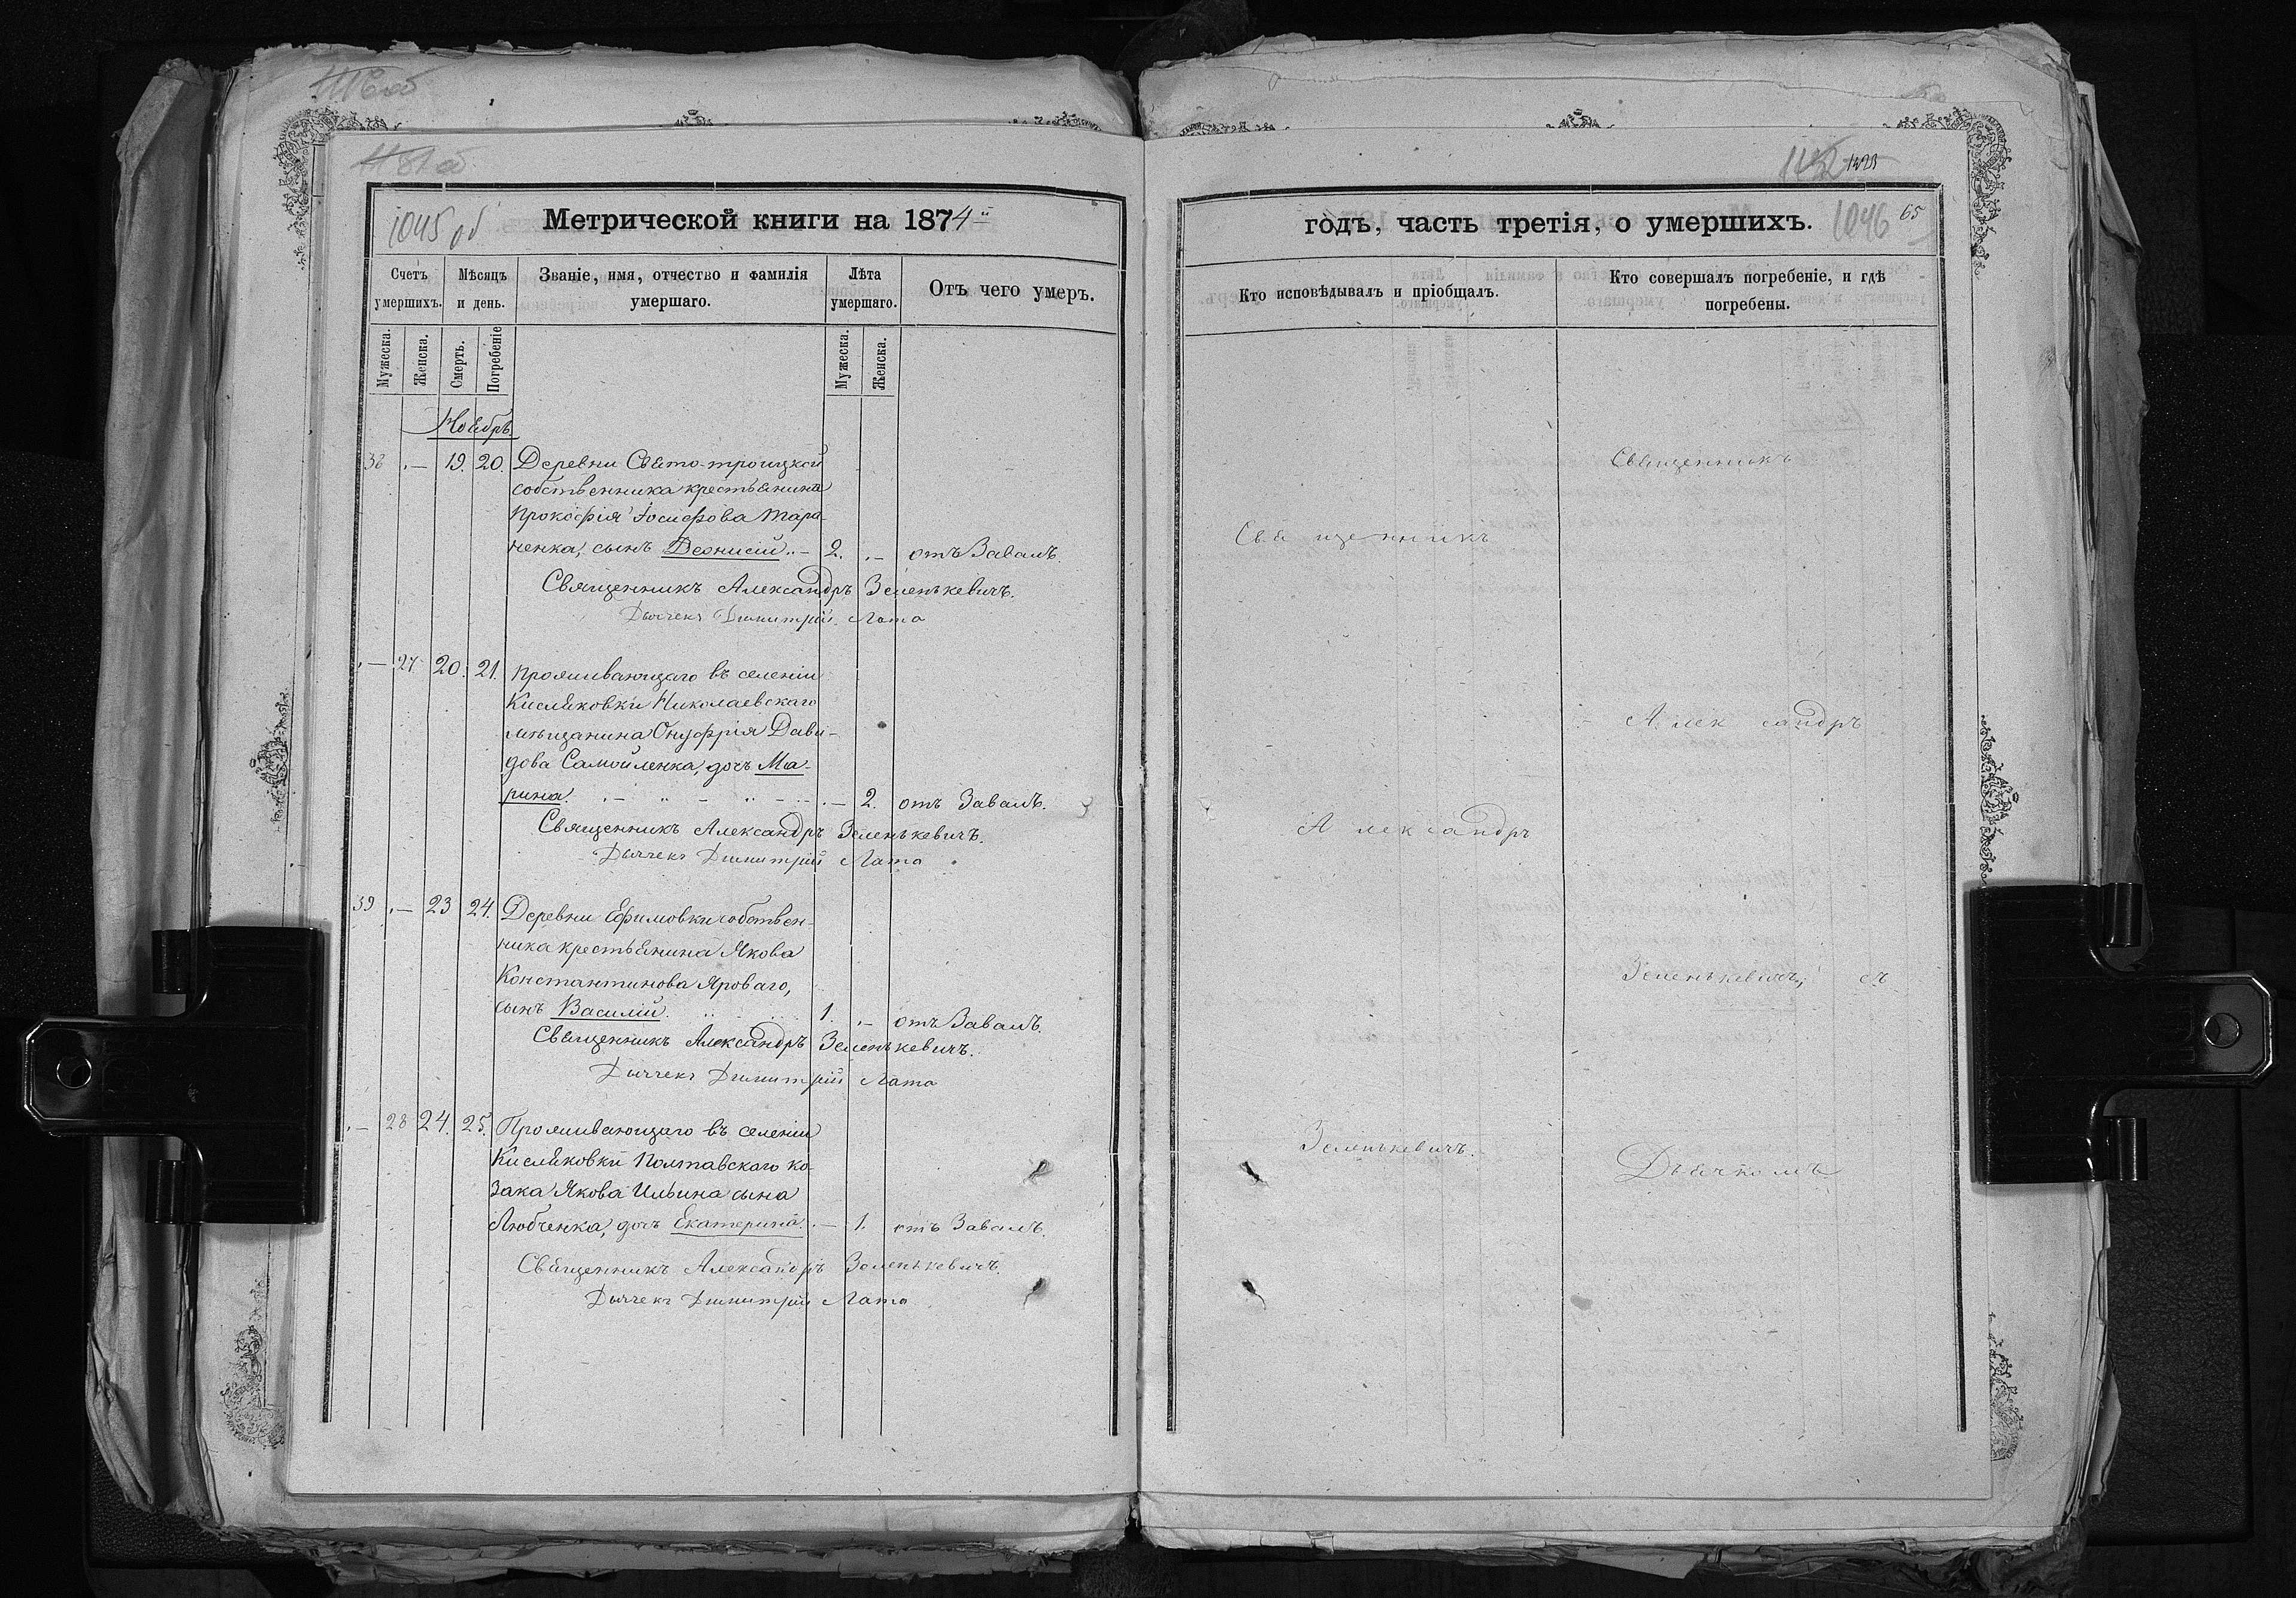 1045 об
Метрической книги на 1874й
Счетъ умершихъ.
Мѣсяцъ и день.
Званіе, имя, отчество и фамилія умершаго.
Лѣта умершаго.
Отъ чего умеръ.
Мужеска.
Женска.
Смерть.
Погребеніе
Мужеска.
Женска.
Ноябрь
38 — 19. 20. Деревни Свято-троицкой
собственника крестьянина
Прокофія Іосифова Тара-
ненка, сынъ Деонисій — 2. — отъ Завалъ.
Священникъ Александръ Зеленькевичъ.
Дьячекъ Димитрій Лата
— 27 20. 21. Проживающаго въ селеніи
Кисляковки Николаевскаго
мѣщанина Онуфрія Дави-
дова Самойленка, дочь Ма-
рина. — 2. отъ Завалъ.
Священникъ Александръ Зеленькевичъ.
Дьячекъ Димитрій Лата
39 — 23 24. Деревни Ефимовки собствен-
ника крестьянина Якова
Константинова Яроваго,
сынъ Василій. 1. — отъ Завалъ.
Священникъ Александръ Зеленькевичъ.
Дьячекъ Димитрій Лата
— 28 24. 25. Проживающаго въ селеніи
Кисляковки Полтавскаго ко-
зака Якова Ильина сына
Любченка, дочь Екатерина. — 1. отъ Завалъ.
Священникъ Александръ Зеленькевичъ.
Дьячекъ Димитрій Лата
годъ, часть третія, о умершихъ.
1046
65
Кто исповѣдывалъ и пріобщалъ.
Кто совершалъ погребеніе, и гдѣ
погребены.
Священникъ
Священникъ
Александръ
Александръ
Зеленькевичъ, съ
Зеленькевичъ.
Дьячкомъ